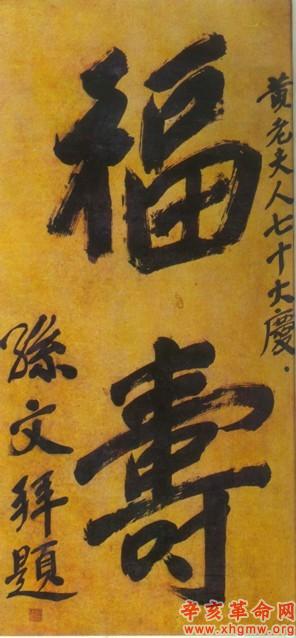 黄老夫人七十大慶.
福壽
孫文拜題
辛亥革命网
www.xhgmw.org